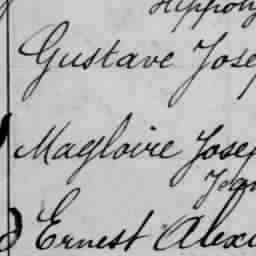 Hippoly
Gustave Jose
Magloire Josep
Jean
Ernest Alexa